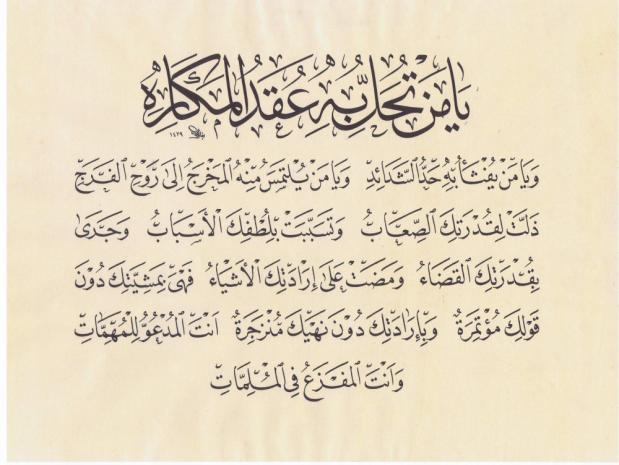 يَا مَنْ تُحَلُّ بِهِ عُقَدُ الْمَكَارِهِ
١٤٢٩
وَيَا مَنْ يُفْثَأُ بِهِ حَدُّ الشَّدَائِدِ وَيَا مَنْ يُلْتَمَسُ مِنْهُ الْمَخْرَجُ إِلَى رَوْحِ الْفَرَجِ
ذَلَّتْ لِقُدْرَتِكَ الصِّعَابُ وَتَسَبَّبَتْ بِلُطْفِكَ الْأَسْبَابُ وَجَرَى
بِقُدْرَتِكَ الْقَضَاءُ وَمَضَتْ عَلَى إِرَادَتِكَ الْأَشْيَاءُ فَهِيَ بِمَشِيَّتِكَ دُونَ
قَوْلِكَ مُؤْتَمِرَةٌ وَبِإِرَادَتِكَ دُونَ نَهْيِكَ مُنْزَجِرَةٌ اَنْتَ الْمَدْعُوُّ لِلْمُهِمَّاتِ
وَاَنْتَ الْمَفْزَعُ فِي الْمُلِمَّاتِ